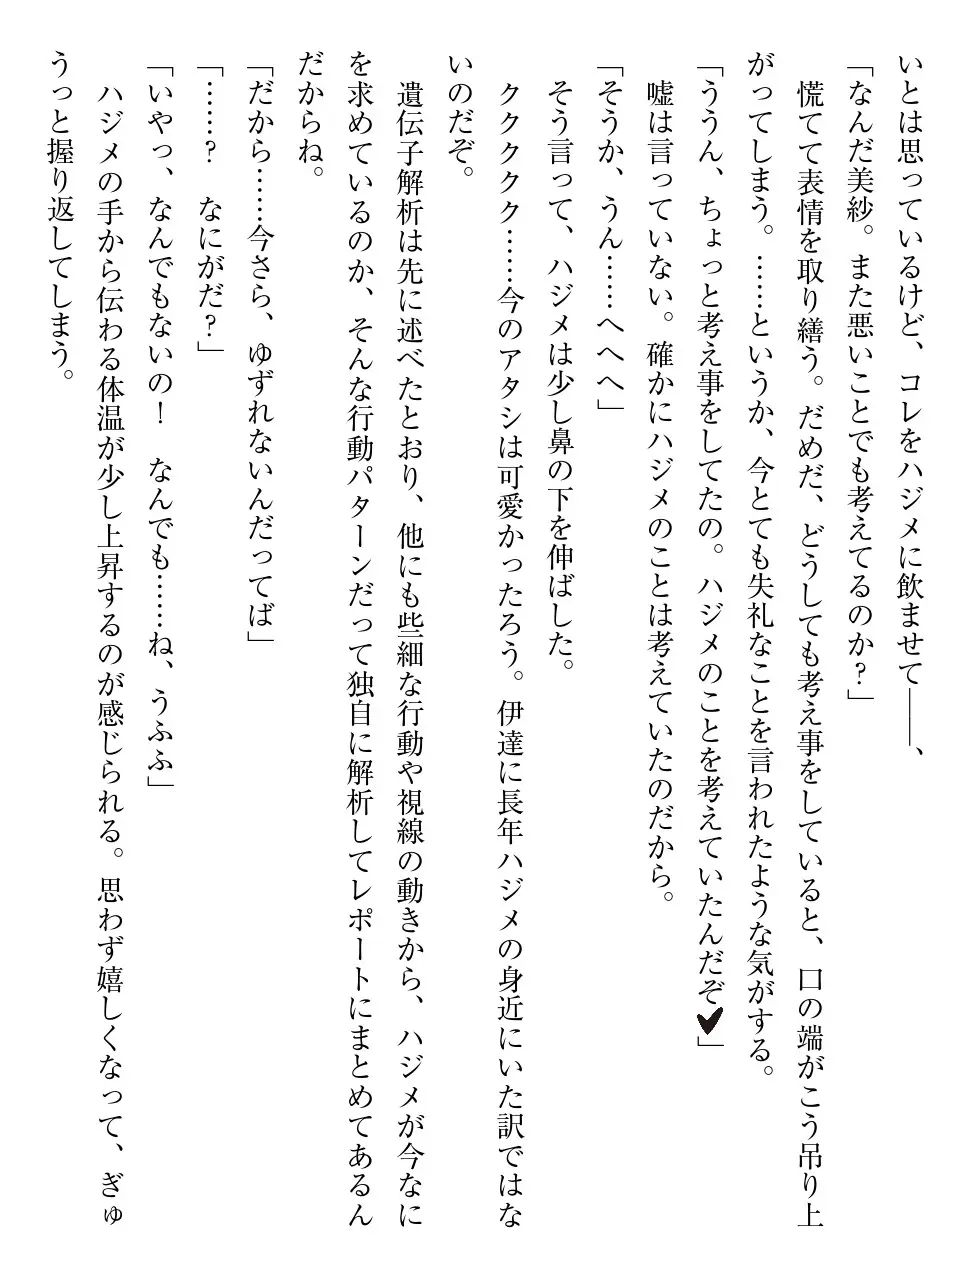 いとは思っているけど、コレをハジメに飲ませて――、
「なんだ美紗。また悪いことでも考えてるのか？」
　慌てて表情を取り繕う。だめだ、どうしても考え事をしていると、口の端がこう吊り上
がってしまう。……というか、今とても失礼なことを言われたような気がする。
「ううん、ちょっと考え事をしてたの。ハジメのことを考えていたんだぞ♥」
　嘘は言っていない。確かにハジメのことは考えていたのだから。
「そうか、うん……へへへ」
　そう言って、ハジメは少し鼻の下を伸ばした。
　クククク……今のアタシは可愛かったろう。伊達に長年ハジメの身近にいた訳ではな
いのだぞ。
　遺伝子解析は先に述べたとおり、他にも些細な行動や視線の動きから、ハジメが今なに
を求めているのか、そんな行動パターンだって独自に解析してレポートにまとめてあるん
だからね。
「だから……今さら、ゆずれないんだってば」
「……？　なにがだ？」
「いやっ、なんでもないの！　なんでも……ね、うふふ」
　ハジメの手から伝わる体温が少し上昇するのが感じられる。思わず嬉しくなって、ぎゅ
うっと握り返してしまう。